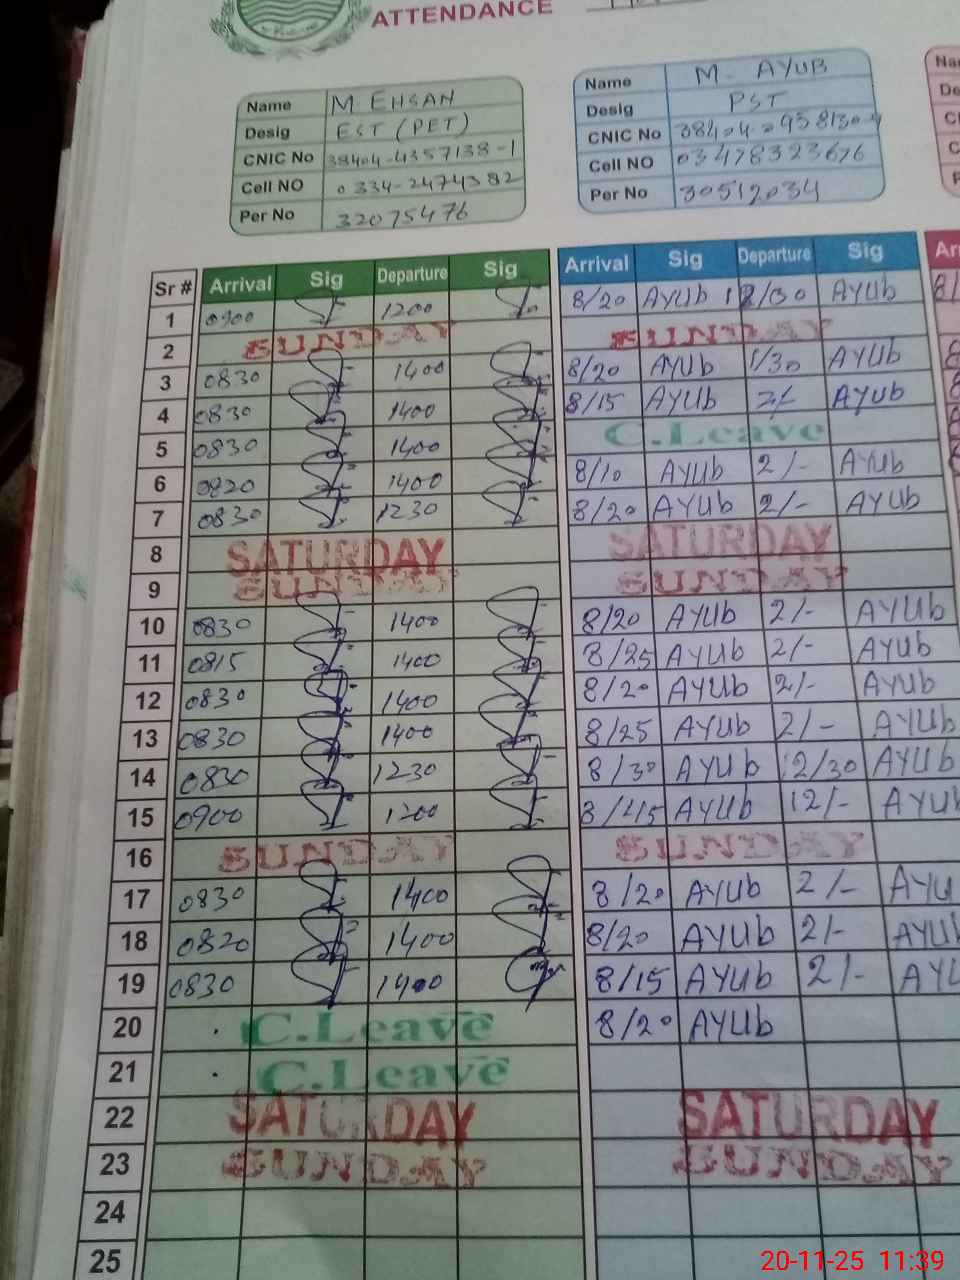 ATTENDANCE
Name M EHSAN
Desig EST (PET)
CNIC No 38404-4357138-1
Cell NO 0334-2474382
Per No 32075476
Name M. AYUB
Desig PST
CNIC No
Cell NO 03478323676
Per No 30512034
Sr # Arrival Sig Departure Sig Arrival Sig Departure Sig
1 0900 1200 8/20 AYUb 12/30 AYUb
2 SUNDAY SUNDAY
3 0830 1400 8/20 AYUb 1/30 AYUb
4 0830 1400 8/15 AYUb 2/- AYUb
5 0830 1400 C.Leave
6 0820 1400 8/10 AYUb 2/- AYUb
7 0830 1230 8/20 AYUb 2/- AYUb
8 SATURDAY SATURDAY
9 SUNDAY SUNDAY
10 0830 1400 8/20 AYUb 2/- AYUb
11 0815 1400 8/25 AYUb 2/- AYUb
12 0830 1400 8/20 AYUb 2/- AYUb
13 0830 1400 8/25 AYUb 2/- AYUb
14 0830 1230 8/30 AYUb 12/30 AYUb
15 0900 1200 8/45 AYUb 12/- AYUb
16 SUNDAY SUNDAY
17 0830 1400 8/20 AYUb 2/- AYU
18 0820 1400 8/20 AYUb 2/- AYUb
19 0830 1400 8/15 AYUb 2/- AYU
20 C.Leave 8/20 AYUb
21 C.Leave
22 SATURDAY SATURDAY
23 SUNDAY SUNDAY
24
25
20-11-25 11:39